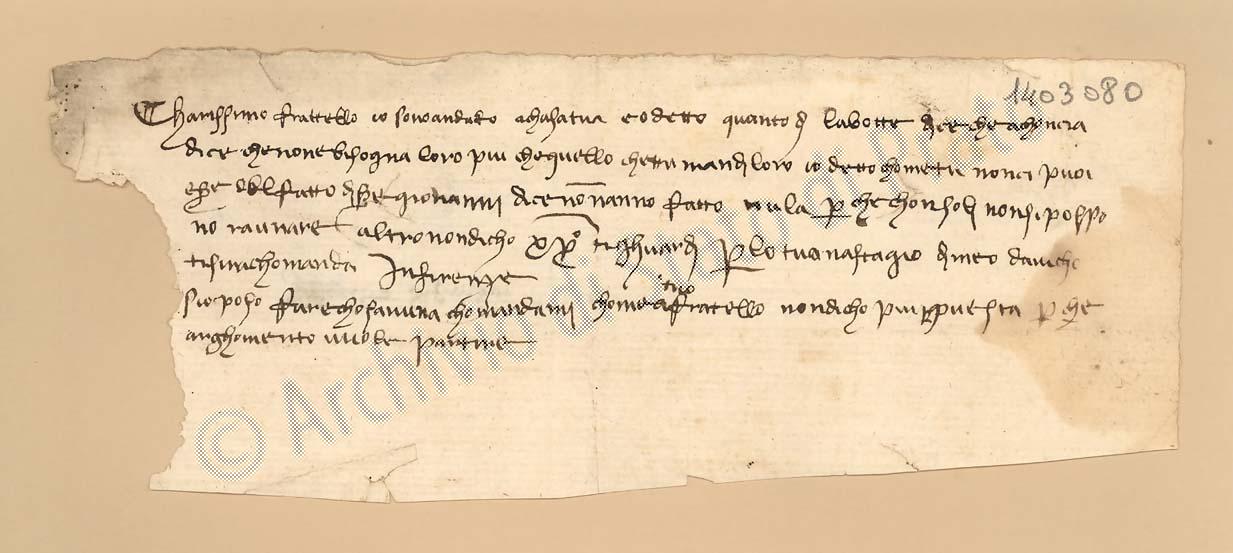 1403080
Charissimo fratello io sono andato a chasa tua e o detto quanto di la botte dice che achoncia
dice che none bisogna loro piu che quello che tu mandi loro io detto chome tu non ci puoi
esere del fatto di ser giovanni dice nō nanno fatto nula p che chonsoli non si posso
nō raunare altro non dicho Xpō ti ghuardi p lo tuo nastagio
ti si rachomanda In firenze
s io poso fare chosa niuna chomandami chome a tuo fratello non dicho piu p questa p che
arghomento vuole partire
© Archivio di Stato di Prato